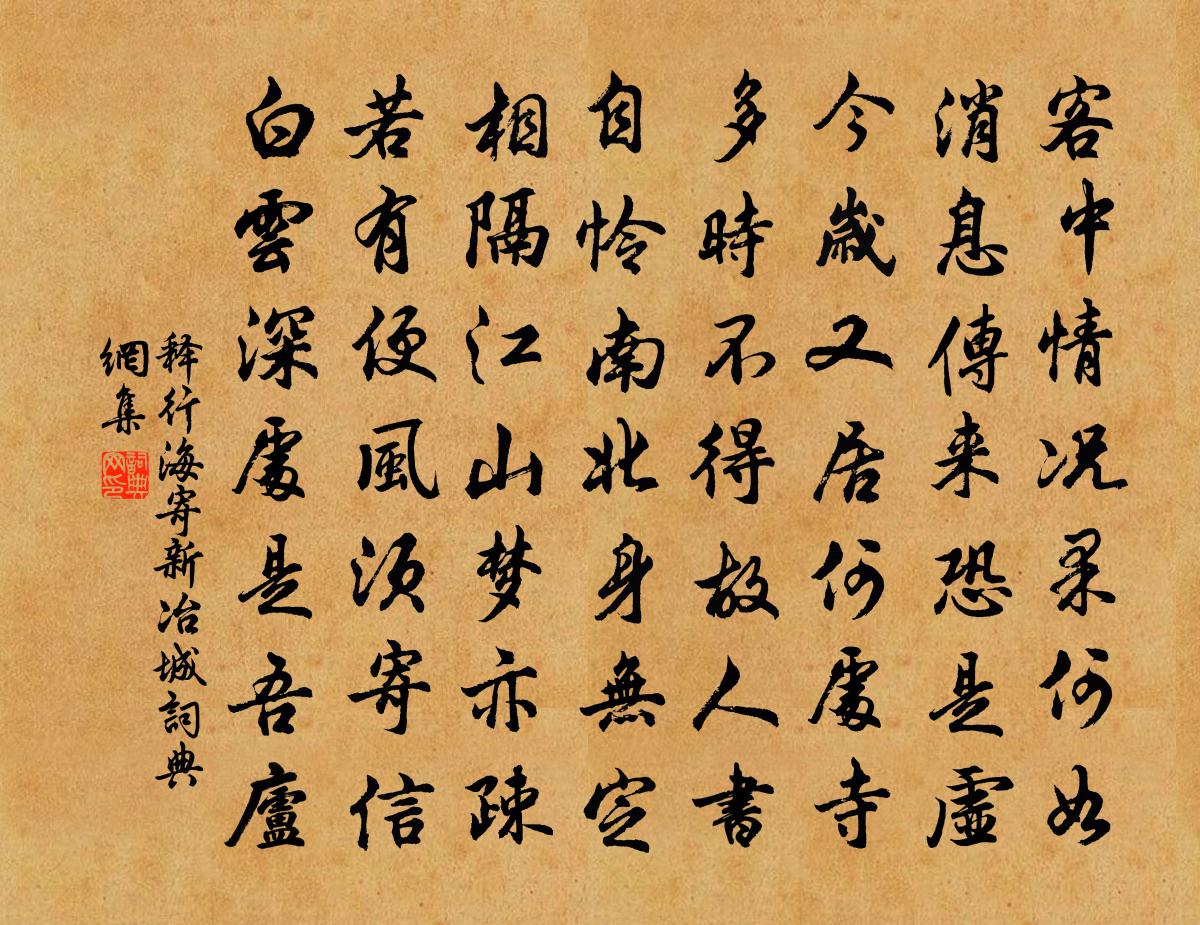 客中情况果何如
消息傳来恐是虛
今歲又居何處寺
多時不得故人書
自怜南北身無定
相隔江山梦亦疎
若有便風須寄信
白雲深處是吾廬
释行海寄新冶城詞典
網集
詞典
网印